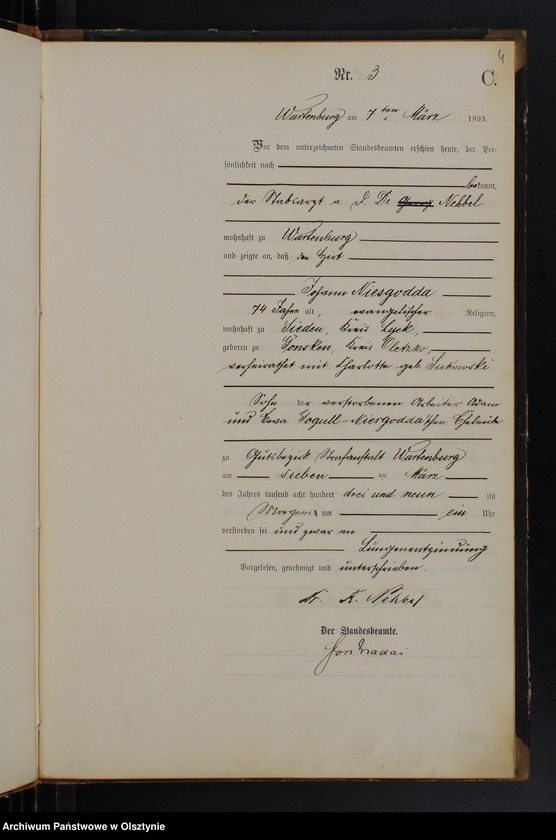 4
Nr. 3
C.
Wartenburg am 7ten März 1893.
Vor dem unterzeichneten Standesbeamten erschien heute, der Per-
sönlichkeit nach
bekannt,
der Stabsarzt a. D. Dr. Nehbel
wohnhaft zu Wartenburg
und zeigte an, daß der Hirt
Johann Niesgodda
74 Jahre alt, evangelischer Religion,
wohnhaft zu Sieden, Kreis Lyck,
geboren zu Gonsken, Kreis Oletzko,
verheirathet mit Charlotte geb. Sukowski
Sohn der verstorbenen Arbeiter Adam
und Ewa Rogull-Niesgodda'schen Eheleute
zu Gutsbezirk Strafanstalt Wartenburg
am sieben ten März
des Jahres tausend acht hundert drei und neun zig
Morgens um ein Uhr
verstorben sei und zwar an
Lungenentzündung
Vorgelesen, genehmigt und unterschrieben.
Dr. K. Nehbel
Der Standesbeamte.
Archiwum Państwowe w Olsztynie